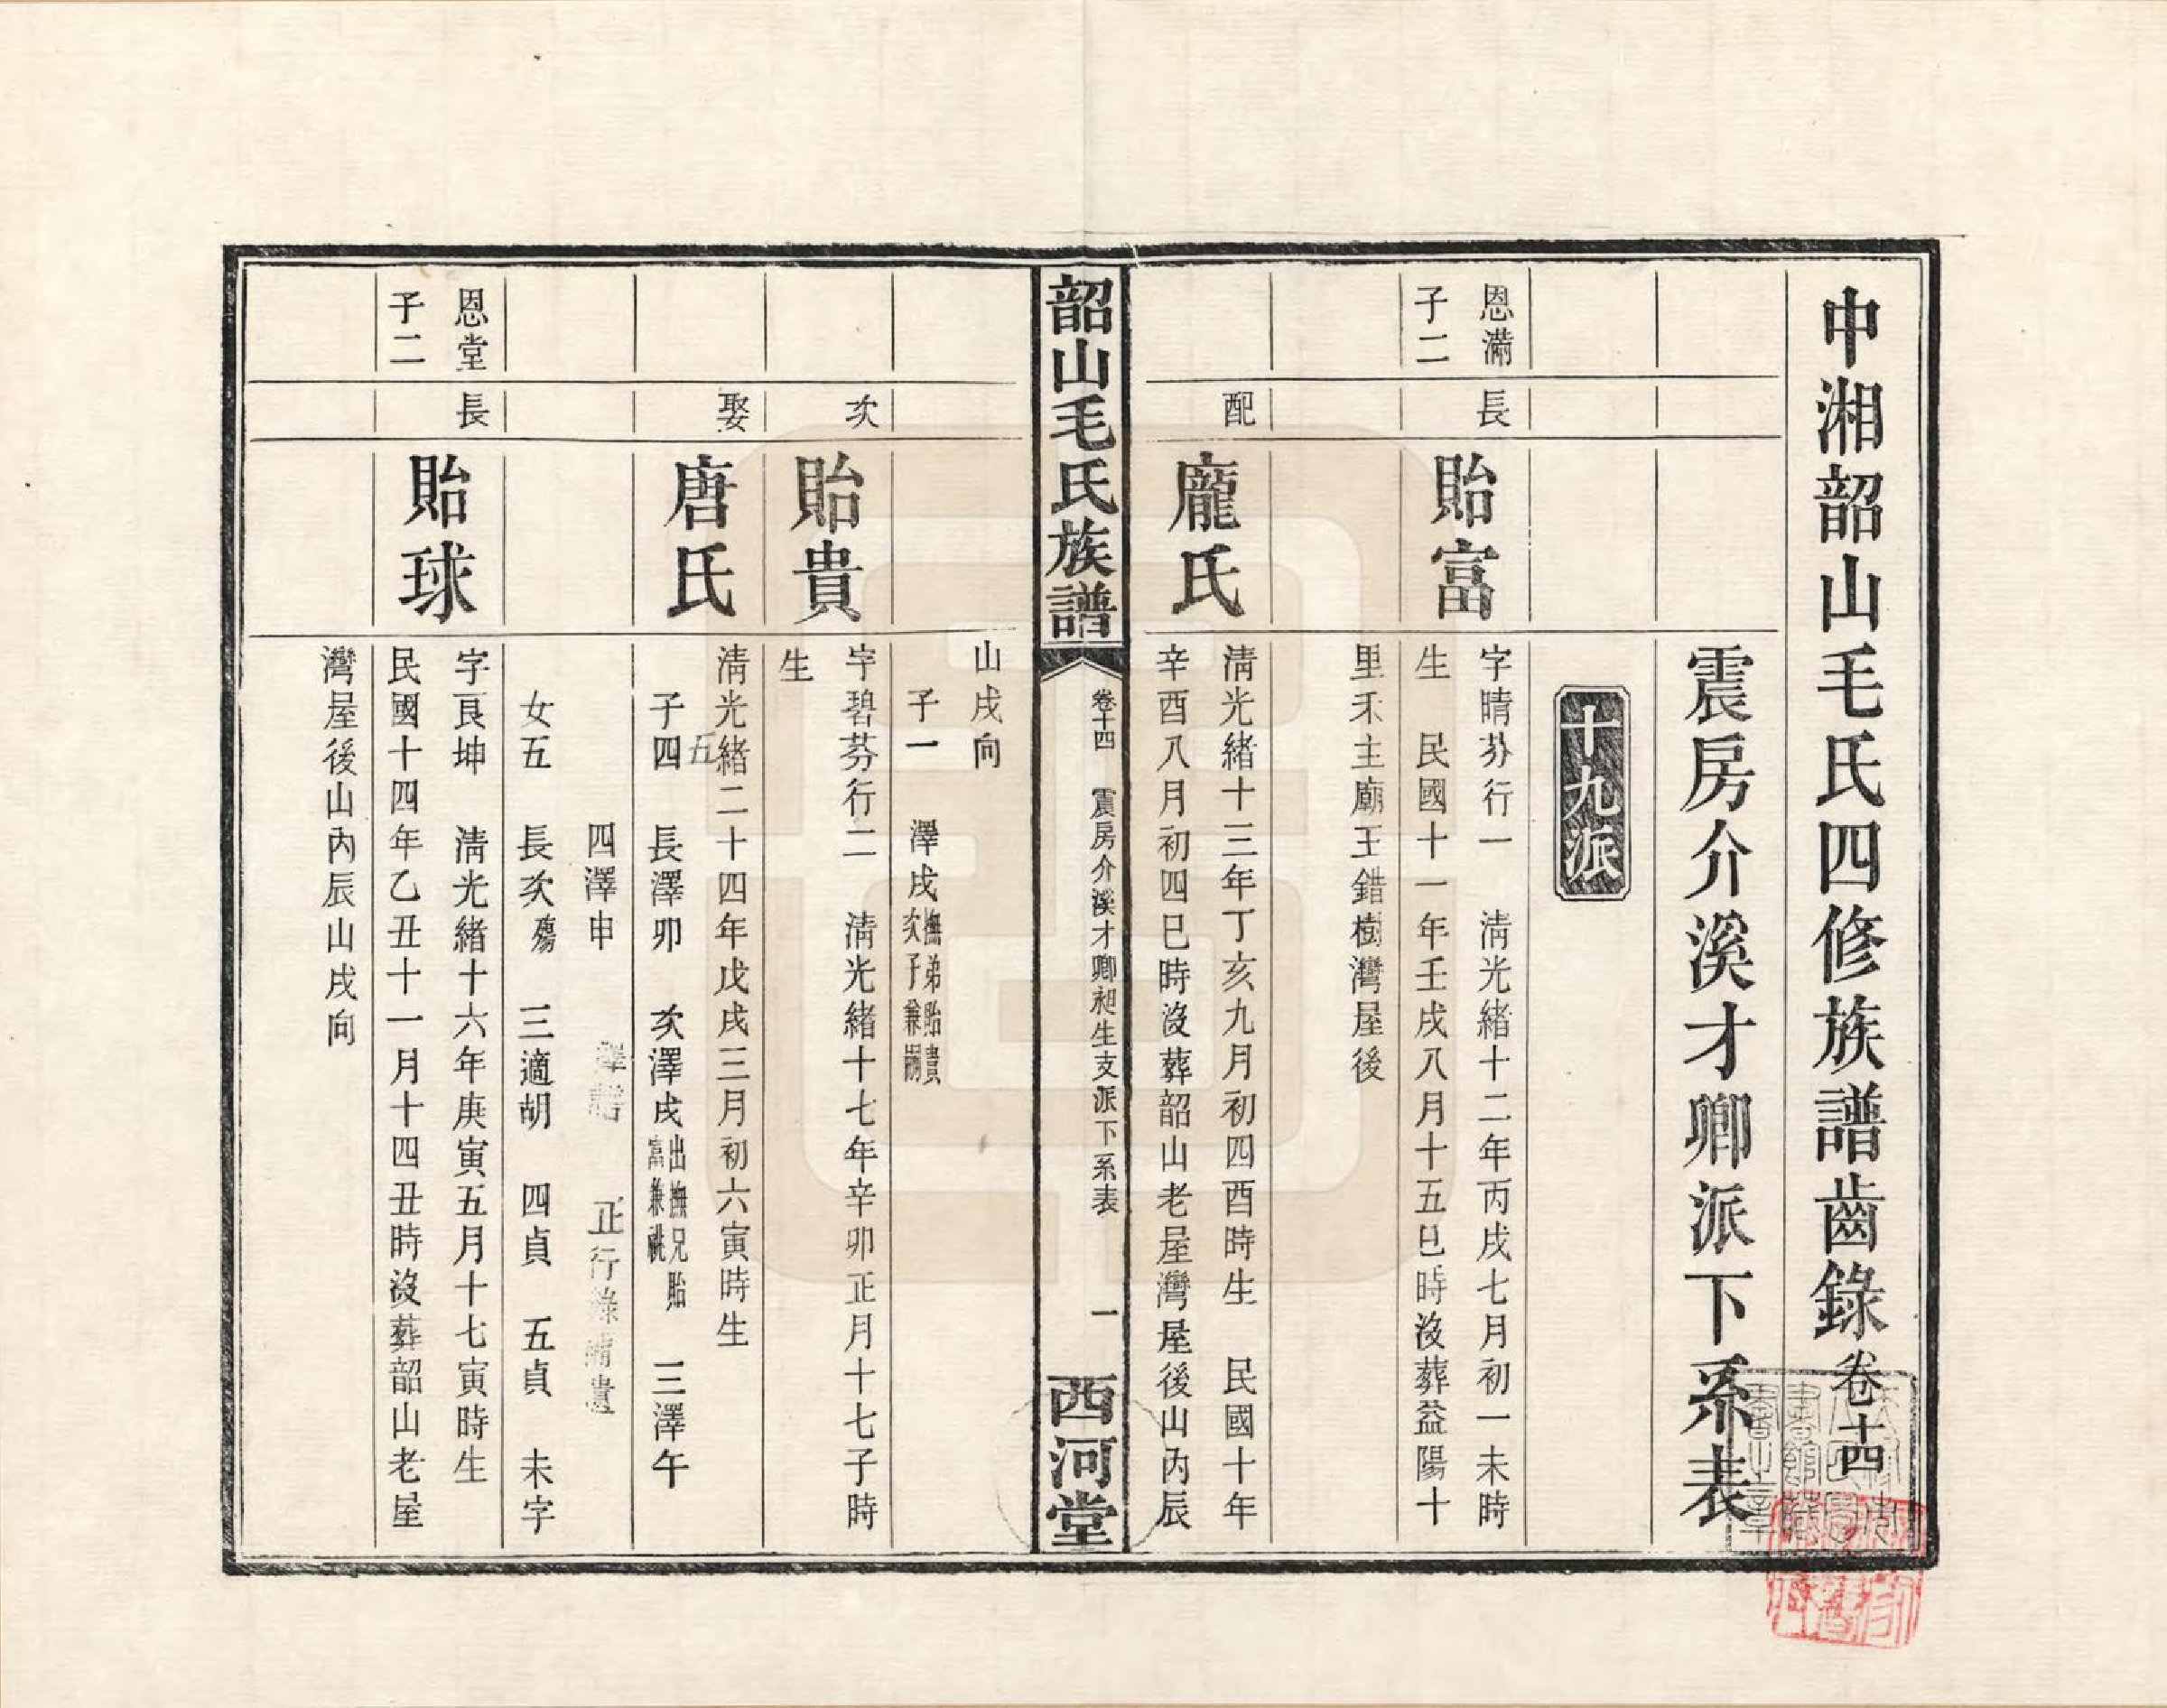 中湘韶山毛氏四修族譜齒錄卷十四
震房介溪才卿派下系表
十九派
恩滿
子二
長
貽富
字晴芬行一　清光緒十二年丙戌七月初一未時
生　民國十一年壬戌八月十五巳時沒葬益陽十
里禾主廟王錯樹灣屋後
配
龐氏
清光緒十三年丁亥九月初四酉時生　民國十年
辛酉八月初四巳時沒葬韶山老屋灣屋後山內辰
韶山毛氏族譜
卷十四　震房介溪才卿昶生支派下系表　一
西河堂
山戌向
子一　澤戌撫弟貽貴次子兼嗣
次
貽貴
字碧芬行二　清光緒十七年辛卯正月十七子時
生
娶
唐氏
清光緒二十四年戊戌三月初六寅時生
五
子四　長澤卯　次澤戌出撫兄貽富兼祧　三澤午
四澤申　澤譜　正行錄補遺
女五　長次殤　三適胡　四貞　五貞　未字
恩堂
子二
長
貽球
字艮坤　清光緒十六年庚寅五月十七寅時生
民國十四年乙丑十一月十四丑時沒葬韶山老屋
灣屋後山內辰山戌向